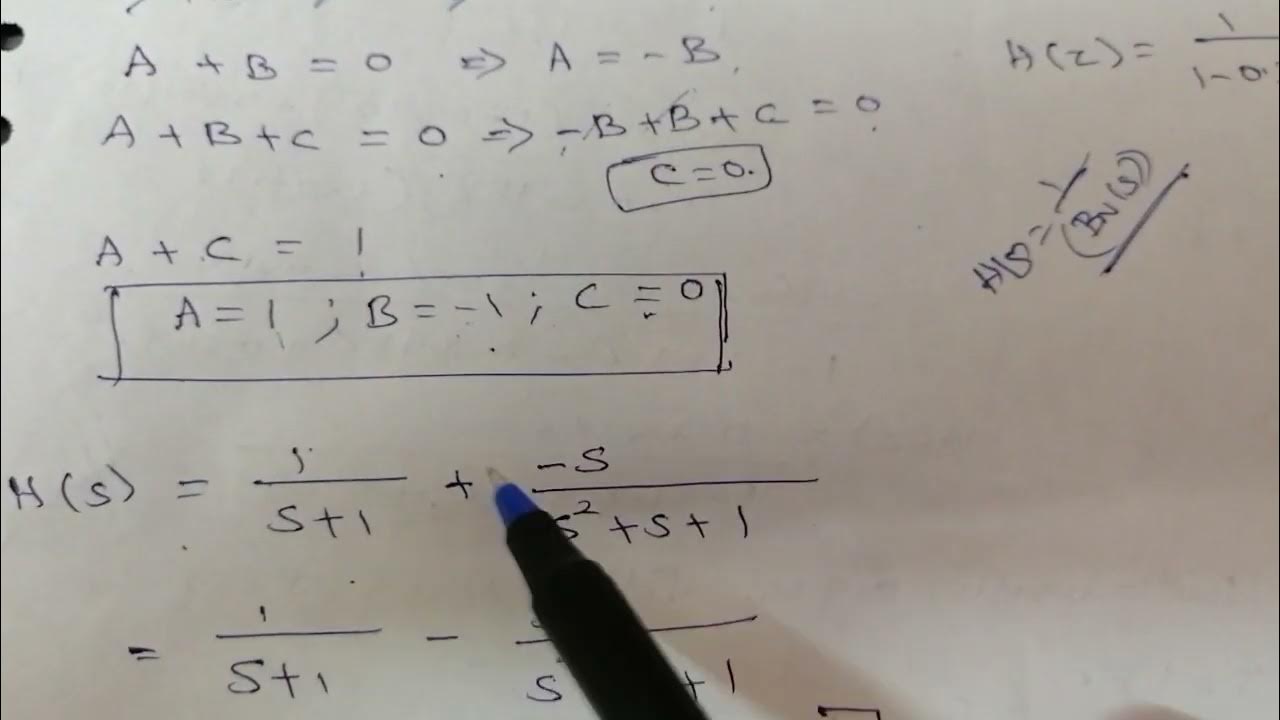 A + B = 0 ⇒ A = -B.
A + B + C = 0 ⇒ -B + B + C = 0
C = 0.
A + C = 1
A = 1 ; B = -1 ; C = 0
H(s) = 1/(s+1) + -s/(s²+s+1)
= 1/(s+1) -
H(z) = 1/(1-0.
H(s) = 1/(BN(s))